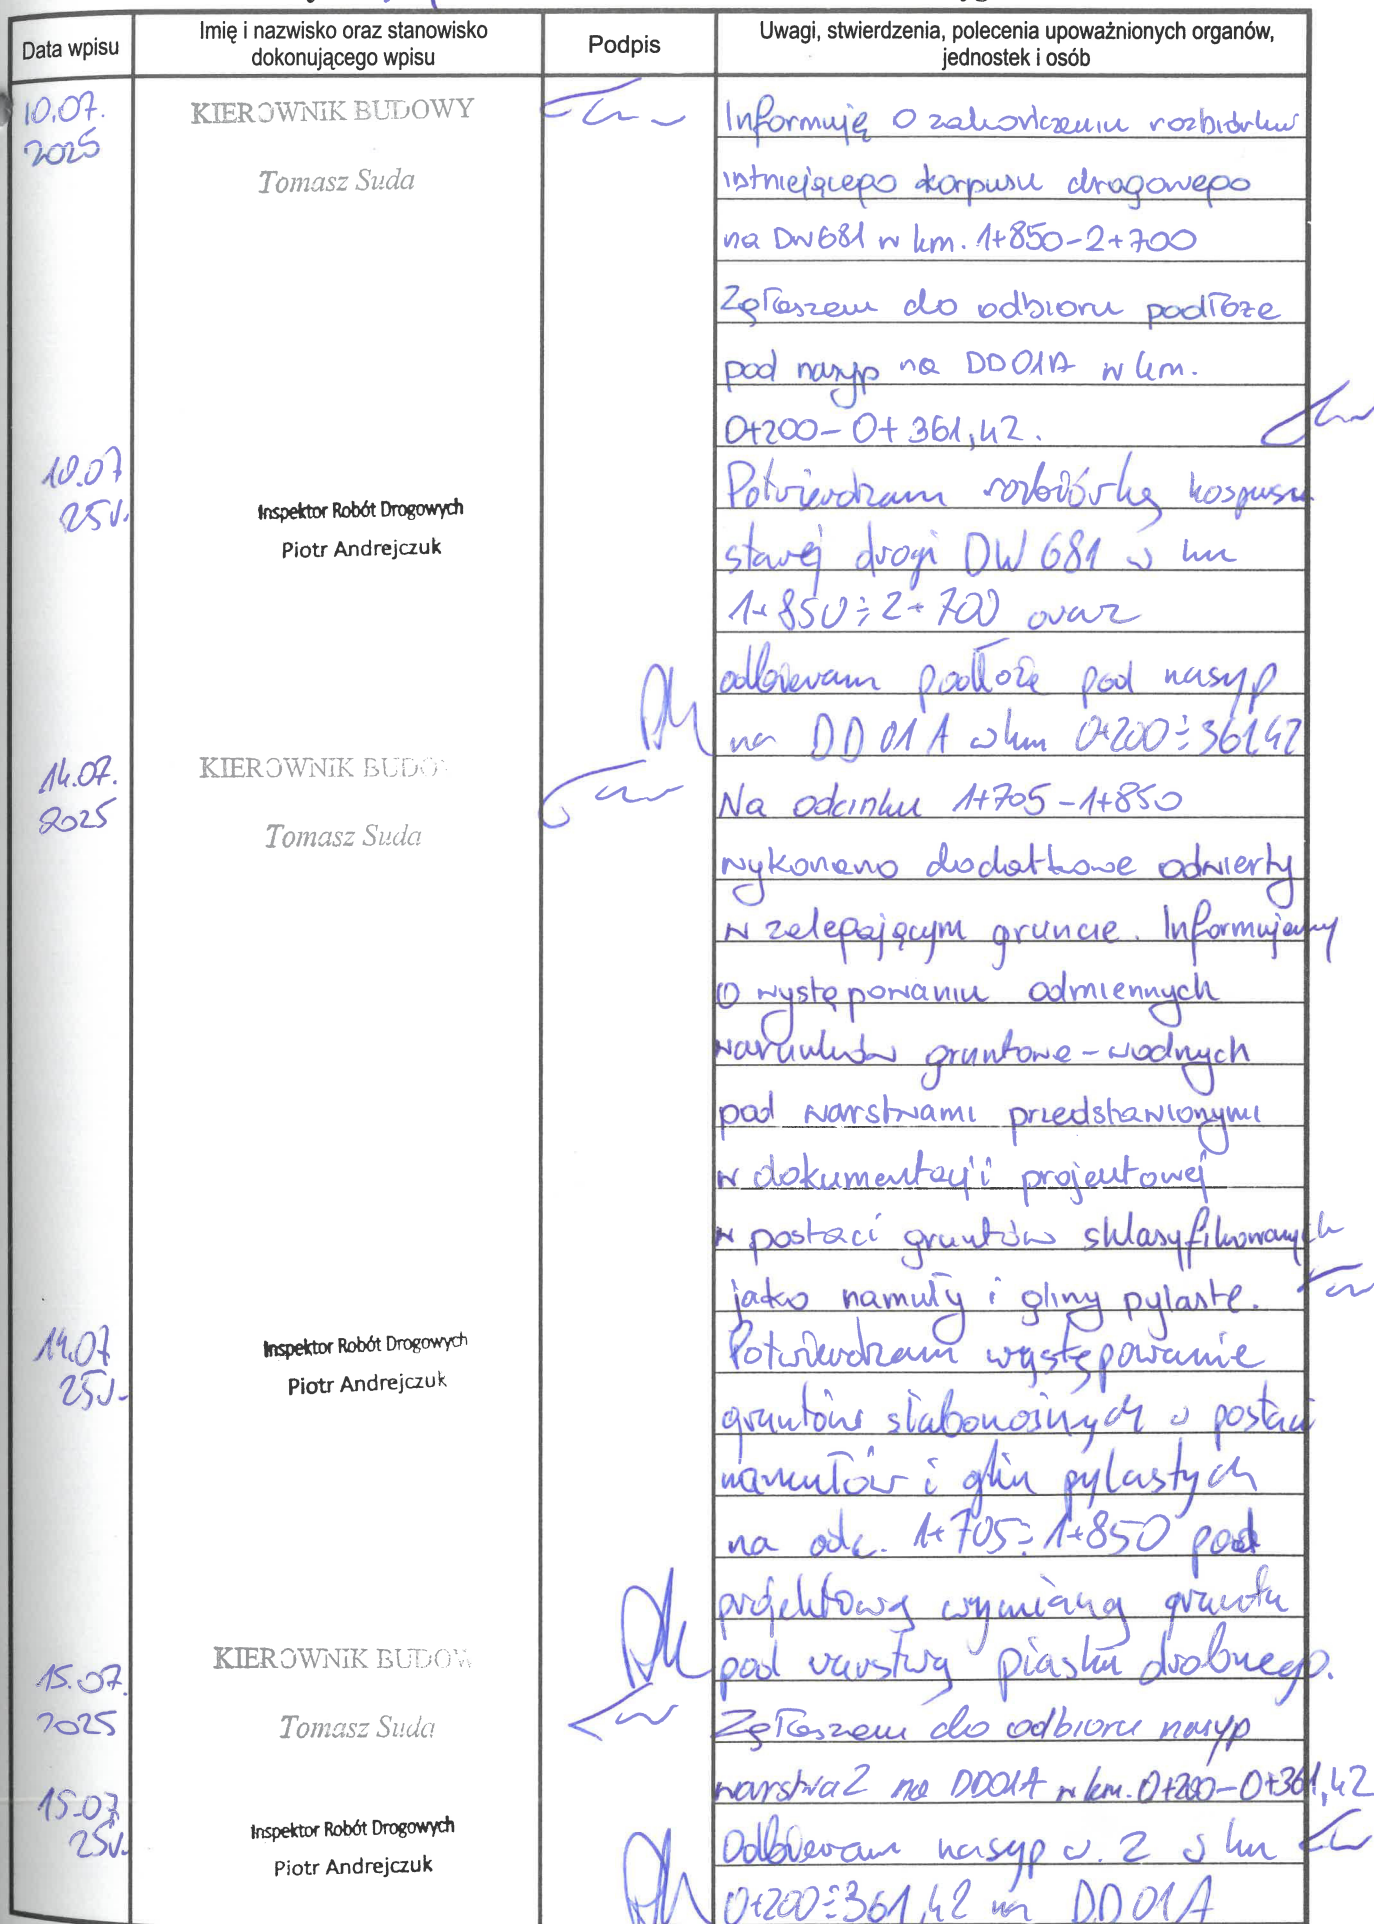 Data wpisu
Imię i nazwisko oraz stanowisko
dokonującego wpisu
Podpis
Uwagi, stwierdzenia, polecenia upoważnionych organów,
jednostek i osób
10.07.
2025
KIEROWNIK BUDOWY
Tomasz Suda
Informuję o zakończeniu rozbiórków
istniejącego korpusu drogowego
na DW681 w km. 1+850-2+700
Zgłaszam do odbioru podłoże
pod nasyp na DD01A w km.
0+200-0+361,42.
10.07
25r.
Inspektor Robót Drogowych
Piotr Andrejczuk
Potwierdzam rozbiórkę korpusu
starej drogi DW 681 w km
1+850÷2+700 oraz
odbieram podłoże pod nasyp
na DD 01A w km 0+200÷361,42
14.07.
2025
KIEROWNIK BUDO
Tomasz Suda
Na odcinku 1+705-1+850
wykonano dodatkowe odwierty
w zalegającym gruncie. Informujemy
o występowaniu odmiennych
warunków gruntowo-wodnych
pod warstwami przedstawionymi
w dokumentacji projektowej
w postaci gruntów sklasyfikowanych
jako namuły i gliny pylaste.
14.07
25r.
Inspektor Robót Drogowych
Piotr Andrejczuk
Potwierdzam występowanie
gruntów słabonośnych w postaci
namułów i glin pylastych
na odc. 1+705÷1+850 pod
projektową wymianą gruntu
pod warstwą piasku drobnego.
15.07.
2025
KIEROWNIK BUDOW
Tomasz Suda
Zgłaszam do odbioru nasyp
warstwa 2 na DD01A w km. 0+200-0+361,42
15.07
25r.
Inspektor Robót Drogowych
Piotr Andrejczuk
Odbieram nasyp w. 2 w km
0+200÷361,42 na DD 01A